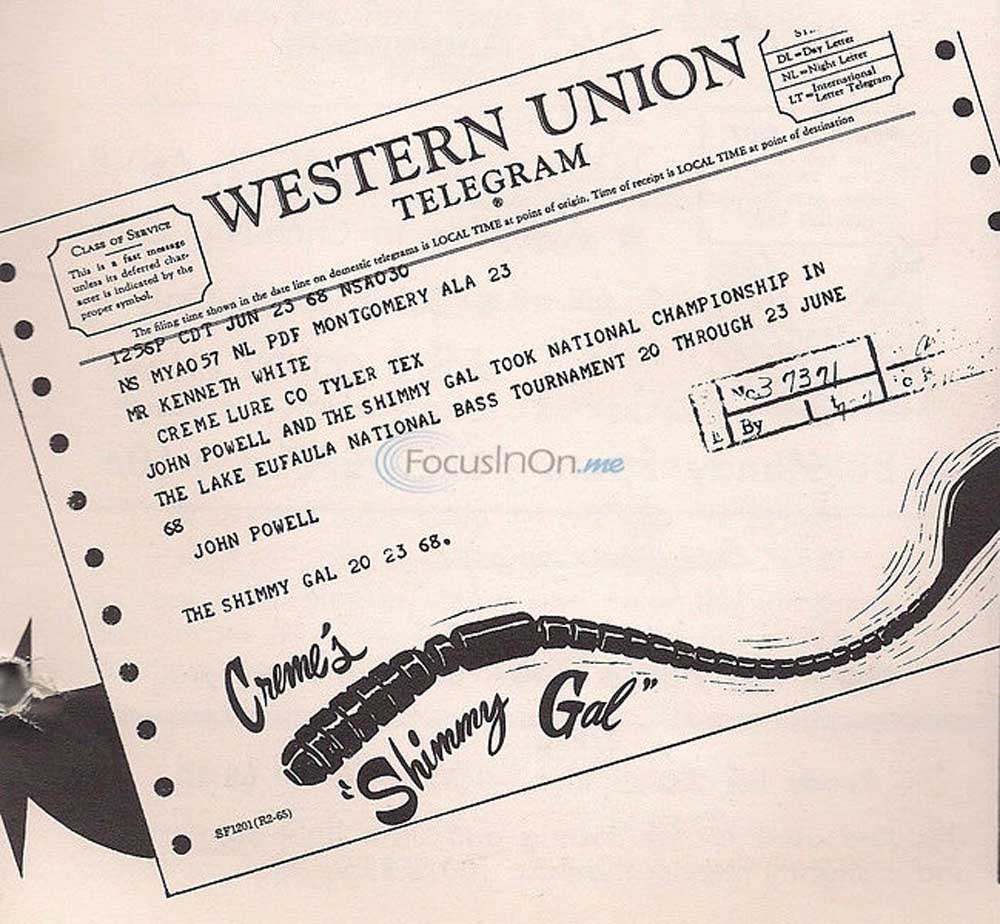 DL=Day Letter
NL=Night Letter
LT=International Letter Telegram
WESTERN UNION
TELEGRAM
®
CLASS OF SERVICE
This is a fast message
unless its deferred char-
acter is indicated by the
proper symbol.
The filing time shown in the date line on domestic telegrams is LOCAL TIME at point of origin. Time of receipt is LOCAL TIME at point of destination
1256P CDT JUN 23 68 NSA030
NS MYA057 NL PDF MONTGOMERY ALA 23
MR KENNETH WHITE
CREME LURE CO TYLER TEX
JOHN POWELL AND THE SHIMMY GAL TOOK NATIONAL CHAMPIONSHIP IN
THE LAKE EUFAULA NATIONAL BASS TOURNAMENT 20 THROUGH 23 JUNE
68
JOHN POWELL
THE SHIMMY GAL 20 23 68.
No. 37371
By
FocusInOn.me
Creme's
"Shimmy Gal"
SF1201(R2-65)